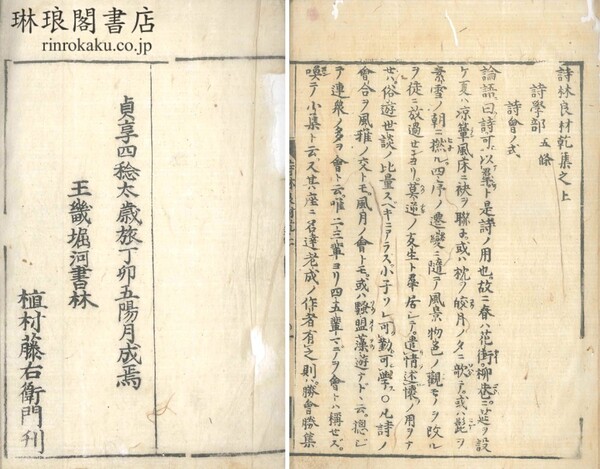 琳琅閣書店
rinrokaku.co.jp
詩林良材乾集之上
詩學部 五條
詩會ノ式
論語ニ曰詩可以羣ト是詩ノ用也故ニ春ハ花街柳巷ニ筵ヲ設
ケ夏ハ凉簟風床ニ袂ヲ聯子或ハ枕ノ皎月ノタニ歌テ或ハ髭ヲ
雪ノ朝ニ撚ル四序ノ遷變ニ隨テ風景物色ノ觀モノヲ改ル
ヲ徒ニ故過センヨリ莫逆ノ友生ト羣居シテ遣情述懷ノ用ヲナ
セバ俗遊世談ノ比量スベキニアラス小子ソレ可勤可學○凡詩ノ
會合ヲ風雅ノ交トモ風月ノ會トモ或ハ盟藻遊ナド云德シ
テ連衆ノ多ヲ會ト云唯二三輩ヨリ四五輩マテノヲ會トハ稱セズ
喚テ小集ト云又其座ニ名達老成ノ作者有之則ハ勝會勝集
貞享四稔太歳旅丁卯五陽月成焉
王畿堀河書林
植村藤右衛門刊